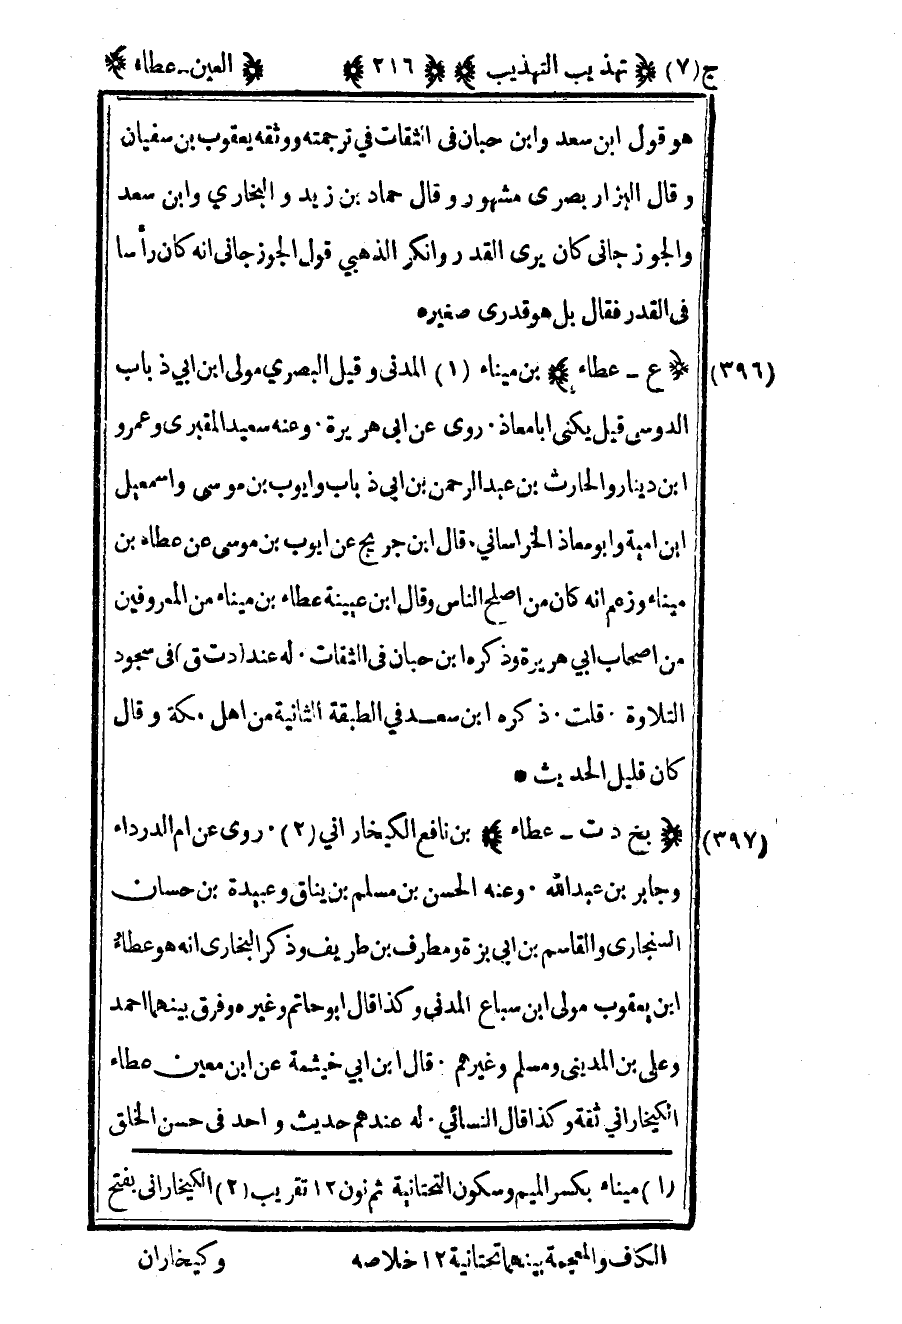 ج (٧) ﴿ تهذيب التهذيب ﴾ ﴿ ٢١٦ ﴾ ﴿ العين ـ عطاء ﴾
هو قول ابن سعد وابن حبان فى الثقات في ترجمته ووثقه يعقوب بن سفيان
وقال البزار بصرى مشهور وقال حماد بن زيد والبخاري وابن سعد
والجوزجانى كان يرى القدر وانكر الذهبي قول الجوزجانى انه كان رأسا
فى القدر فقال بل هو قدرى صغيره
(٣٩٦) ﴿ ع ـ عطاء ﴾ بن ميناء (١) المدنى وقيل البصري مولى ابن ابي ذباب
الدوسى قيل يكنى ابا معاذ ٠ روى عن ابى هريرة ٠ وعنه سعيد المقبرى وعمرو
ابن دينار والحارث بن عبد الرحمن بن ابى ذباب وايوب بن موسى واسمعيل
ابن امية وابو معاذ الخراساني ٠ قال ابن جريج عن ايوب بن موسى عن عطاء بن
ميناء وزعم انه كان من اصلح الناس وقال ابن عيينة عطاء بن ميناء من المعروفين
من اصحاب ابي هريرة وذكره ابن حبان فى الثقات ٠ له عند (دت ق) فى سجود
التلاوة ٠ قلت ٠ ذكره ابن سعد في الطبقة الثانية من اهل مكة وقال
كان قليل الحديث •
(٣٩٧) ﴿ بخ د ت ـ عطاء ﴾ بن نافع الكيخاراني (٢) ٠ روى عن ام الدرداء
وجابر بن عبد الله ٠ وعنه الحسن بن مسلم بن يناق وعبيدة بن حسان
السنجارى والقاسم بن ابي بزة ومطرف بن طريف وذكر البخارى انه هو عطاء
ابن يعقوب مولى ابن سباع المدني وكذا قال ابو حاتم وغيره وفرق بينهما احمد
وعلى بن المدينى ومسلم وغيرهم ٠ قال ابن ابي خيثمة عن ابن معين عطاء
الكيخاراني ثقة وكذا قال النسائي ٠ له عندهم حديث واحد فى حسن الخلق
(١) ميناء بكسر الميم وسكون التحتانية ثم نون ١٢ تقريب (٢) الكيخارانى بفتح
الكاف والمعجمة بينهما تحتانية ١٢ خلاصه وكيخاران